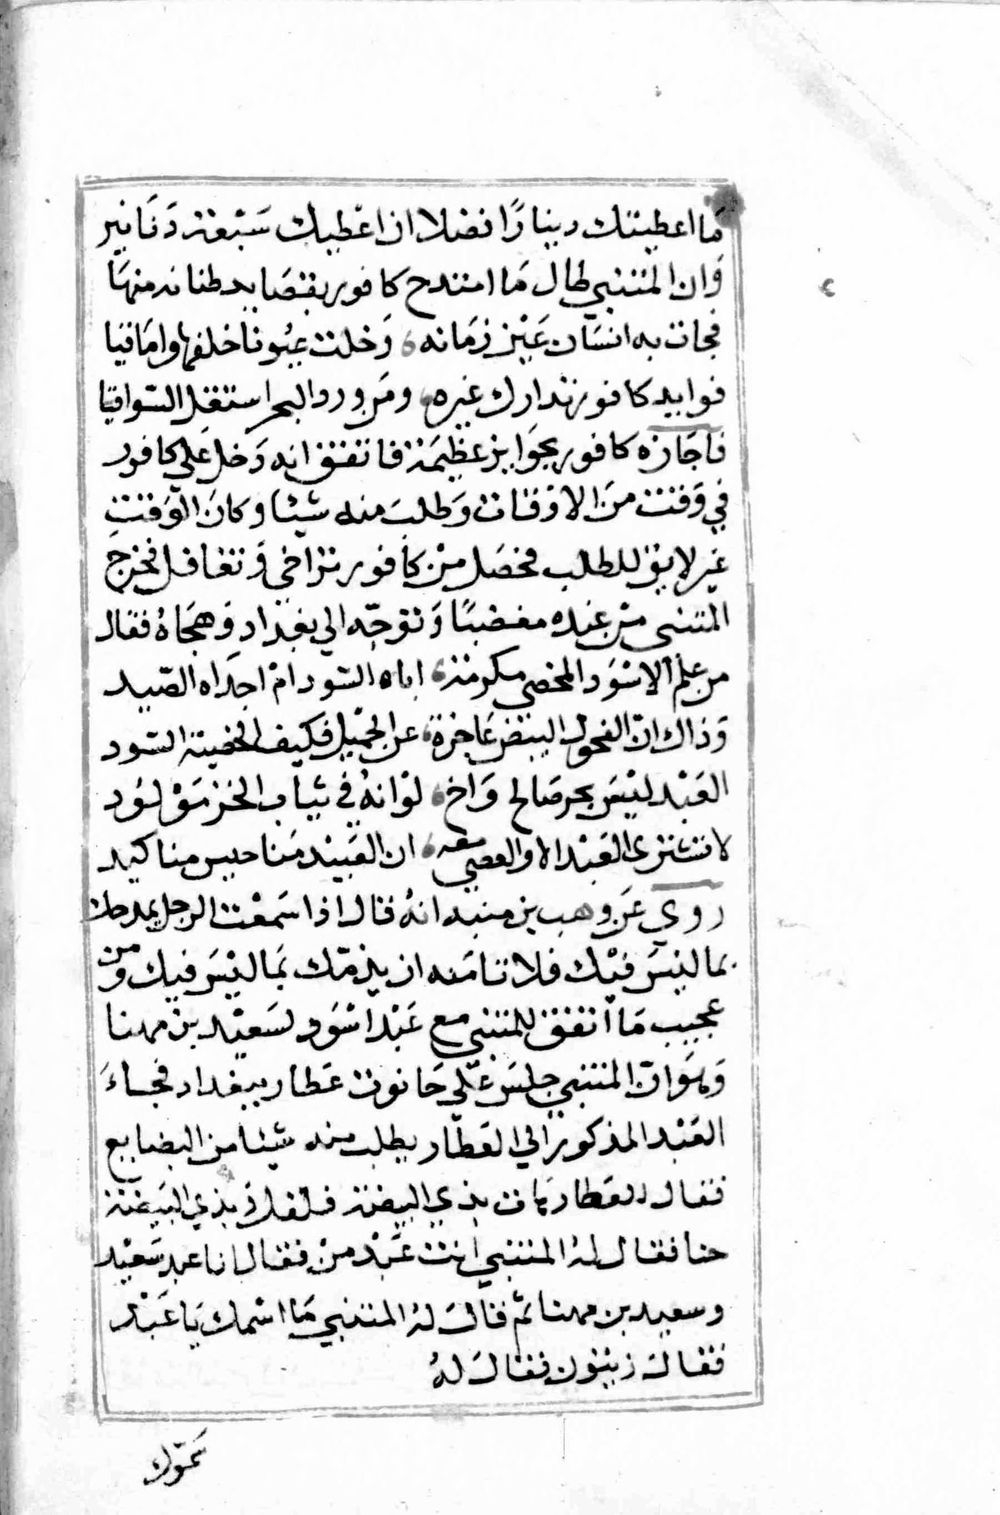 مَا اعطيتك دينارًا فضلا ان اعْطِيك سَبْعَة دَنَانير
وَان المتنبي طال مَا امتدح كافور بقصايد طنانه منهَا
فجات به انسَان عَيْن زمَانه، وَخلت عيُونا خلفها وامَاقيا
فوايد كافور تدارك غيره، ومَن ورد البحر استقل السّواقيا
فاجَازه كافور بجوَايز عظيمَة فاتفق انه دَخل عَلي كافور
في وَقت منَ الاوْقات وَطلبَ منه شيئا وكانَ الوَقت
غير لايق للطلب فحصَل مِنْ كافور تراخي وَتغافل فخرج
المتنبي مِنْ عنده مغضبًا وَتوَجّه الي بغداد وَهجَاهُ فقال
من علم الاسْوَد المخصي مكرمة، اباه السّود امْ اجدَاه الصّيد
وَذاك انّ الفحول البيض عَاجزة، عن الجميل فكيف الخصية السّود
العَبْد ليْسَ بحر صَالح وَاخ، لوْ انهُ في ثياب الخز موْلود
لا تشتري العَبْد الا والعصي معه، ان العَبيد منَاحيس مناكيد
روي عَن وهب بن منبه انهُ قال اذا سَمعْت الرجل يمدحك
بما ليسَ فيْك فلا تامَنه ان يذمّك بمَا ليْسَ فيك وَمن
عجيب مَا اتفق للمتنبي مع عَبْد اسْوَد لسَعيْد بن مهنا
وَهوَ انّ المتنبي جلسَ عَلي حَانوت عَطار ببغداد فجاءَ
العَبْد المذكور الي العَطّار يطلب منه شيئا من البضايع
فقال للعَطار هات بذي البيضة فلفلا وَبذي البَيضَة
حنا فقال لهُ المتنبي انت عَبْد مِنْ فقال انا عبد سَعيْد
وسعيد بن مهنا ثمّ قالَ لهُ المتنبي مَا اسْمك يَا عَبْد
فقال زيتون فقالَ لهُ
سَمّوك